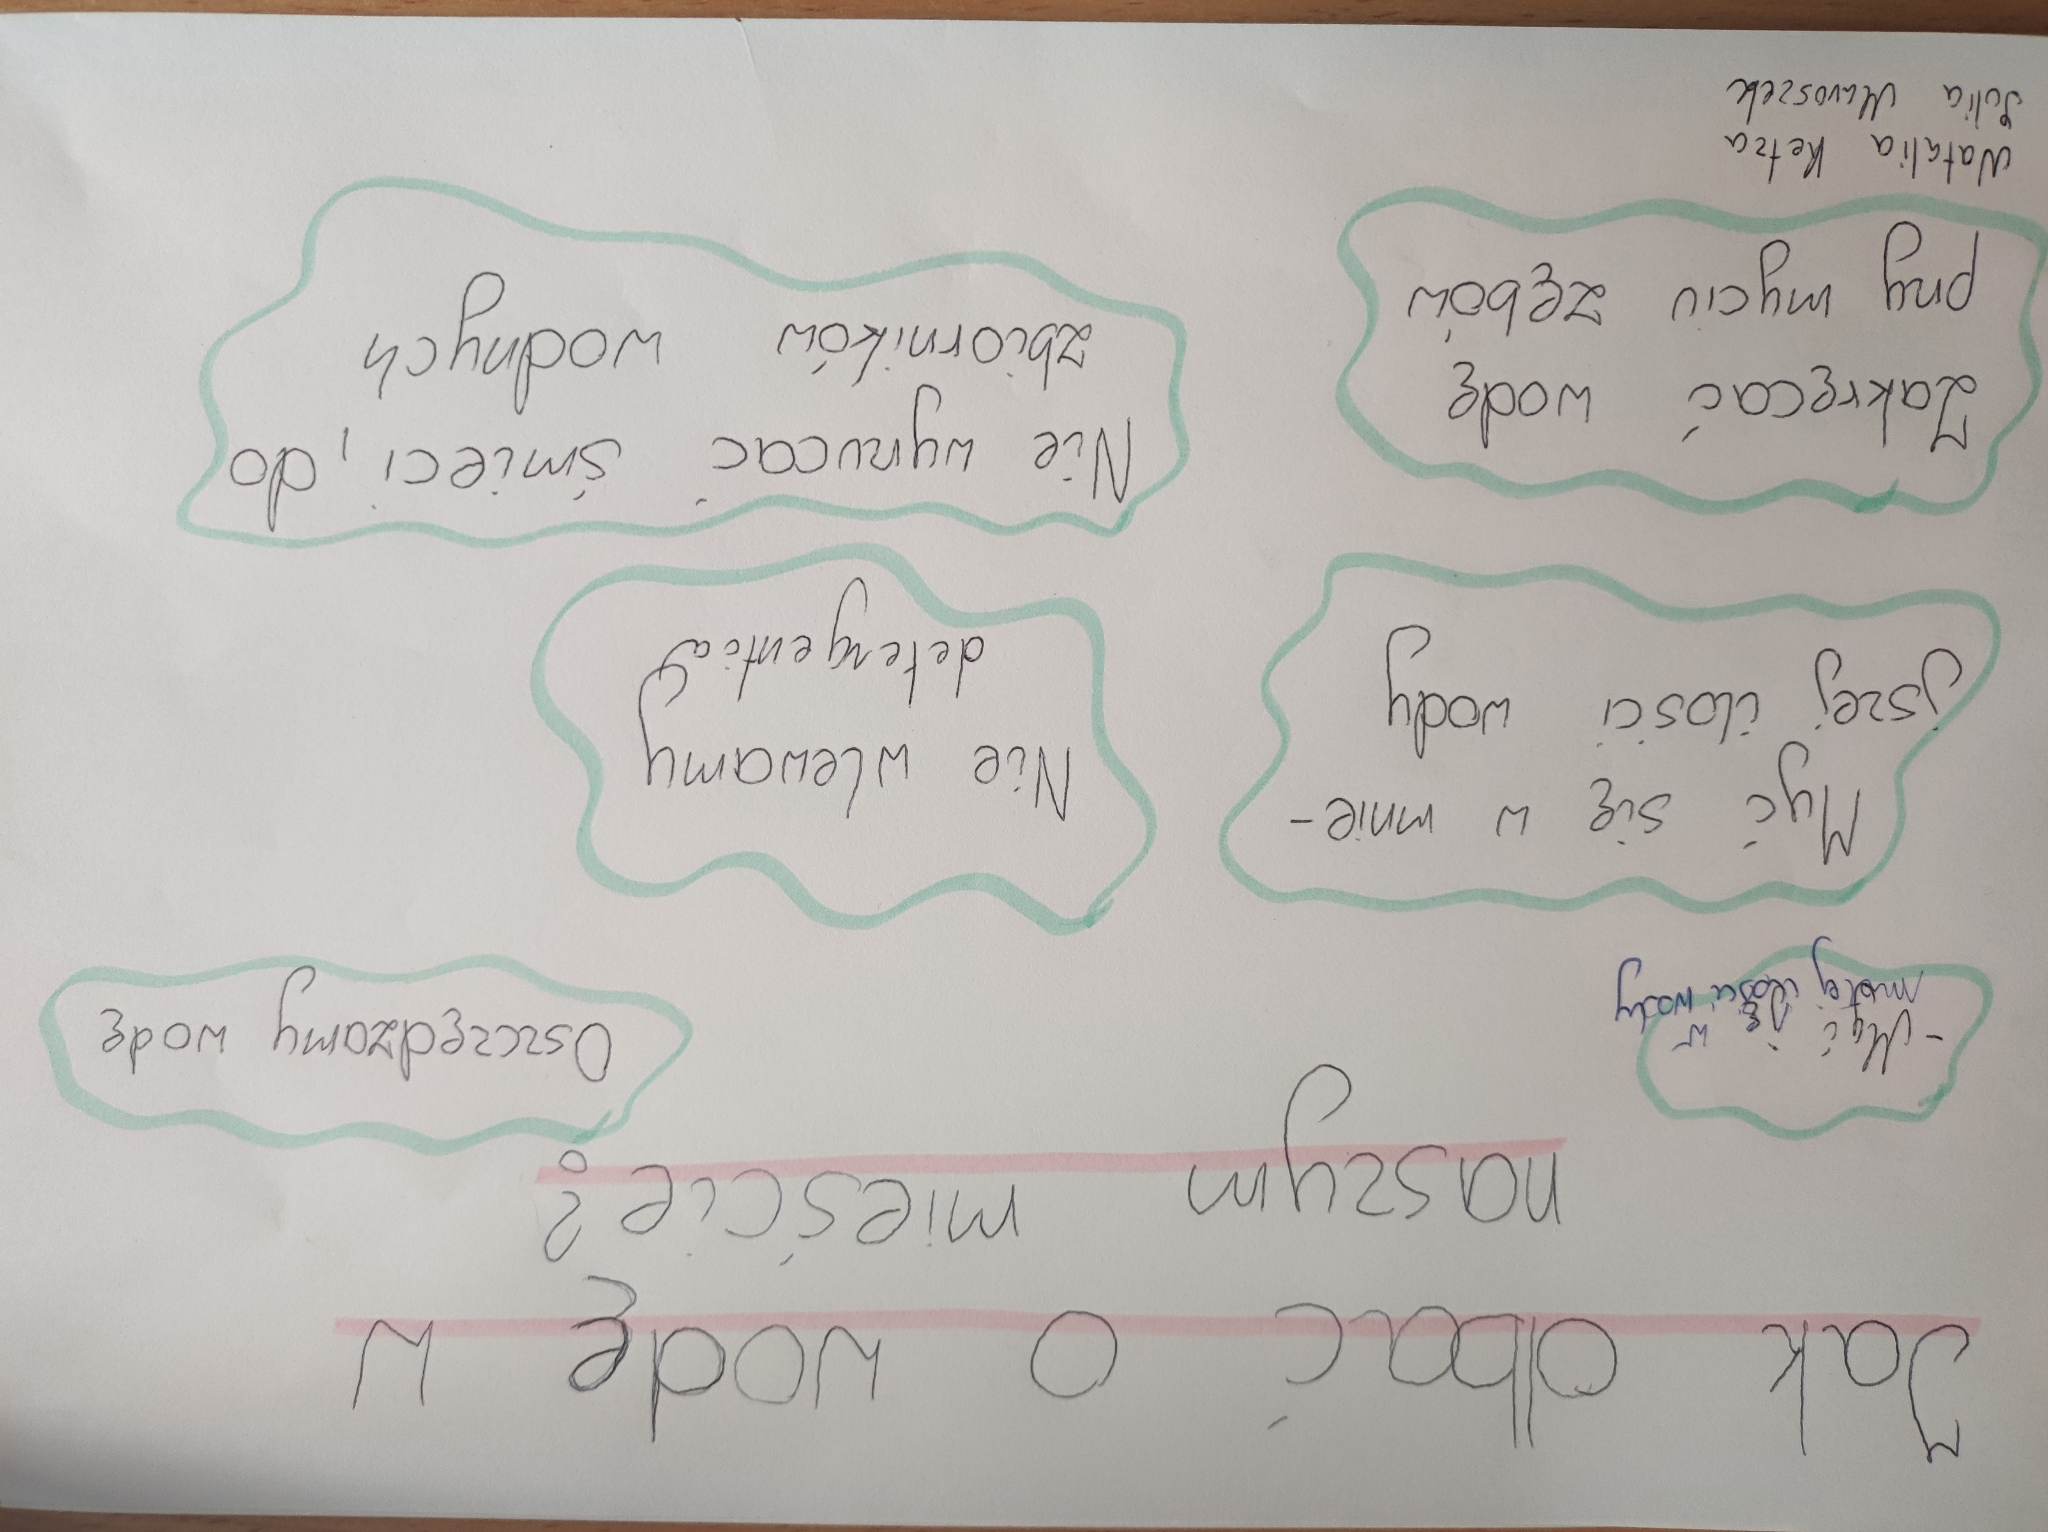 Jak dbać o wodę w
naszym mieście?
- Myć się w
małej ilości wody
Oszczędzamy wodę
Myć się w mnie-
jszej ilości wody
Nie wlewamy
detergentia
Zakręcać wodę
przy myciu zębów
Nie wyrzucać śmieci, do
zbiorników wodnych
Natalia
Julia